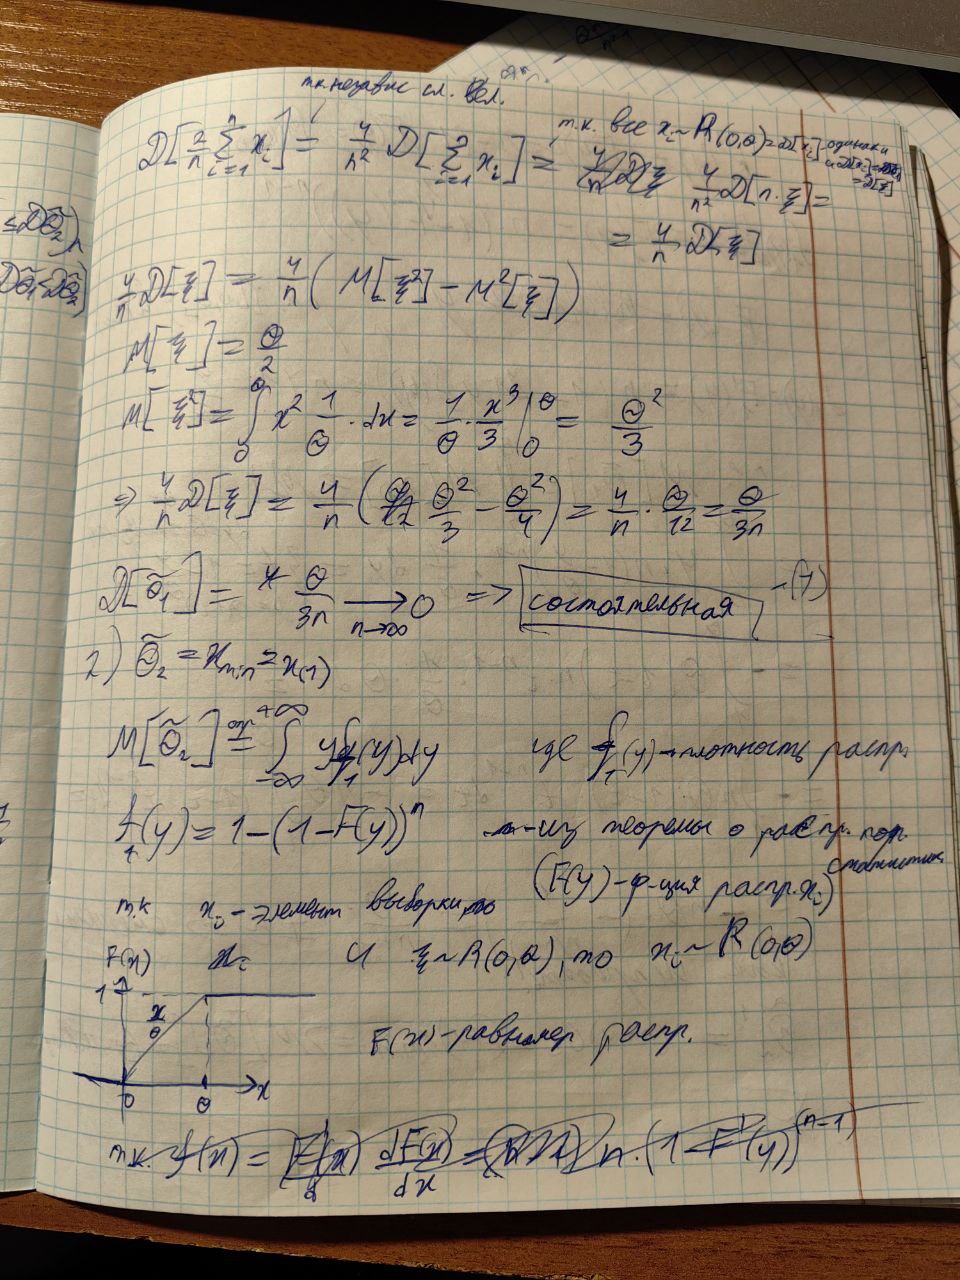 т.к. независ сл. вел.
D[2/n ∑_{i=1}^{n} x_i] = 4/n² D[∑_{i=1}^{n} x_i] =
т.к. все x_i ~ R(0,θ) ⇒ D[x_i] одинаки
4/n² D[n·ξ] =
= 4/n D[ξ]
4/n D[ξ] = 4/n (M[ξ²] − M²[ξ])
M[ξ] = θ/2
M[ξ²] = ∫_0^θ x² 1/θ · dx = 1/θ · x³/3 |_0^θ = θ²/3
⇒ 4/n D[ξ] = 4/n (θ²/3 − θ²/4) = 4/n · θ/12 = θ/3n
D[θ̃₁] = θ/3n →_{n→∞} 0 ⇒ состоятельная – (7)
2) θ̃₂ = x_min = x_(1)
M[θ̃₂] = ∫_{−∞}^{+∞} y f₁(y) dy где f₁(y) – плотность распр.
f₁(y) = 1 − (1 − F(y))ⁿ – из теоремы о распр. пор. статистик
(F(y) – ф-ция распр. x_i)
т.к x_i – элемент выборки
F(x) и ξ ~ R(0,θ), то x_i ~ R(0,θ)
1
x/θ
F(x) – равномер распр.
0 θ x
т.к. f(x) = dF(x)/dx = n·(1 − F(y))^(n−1)